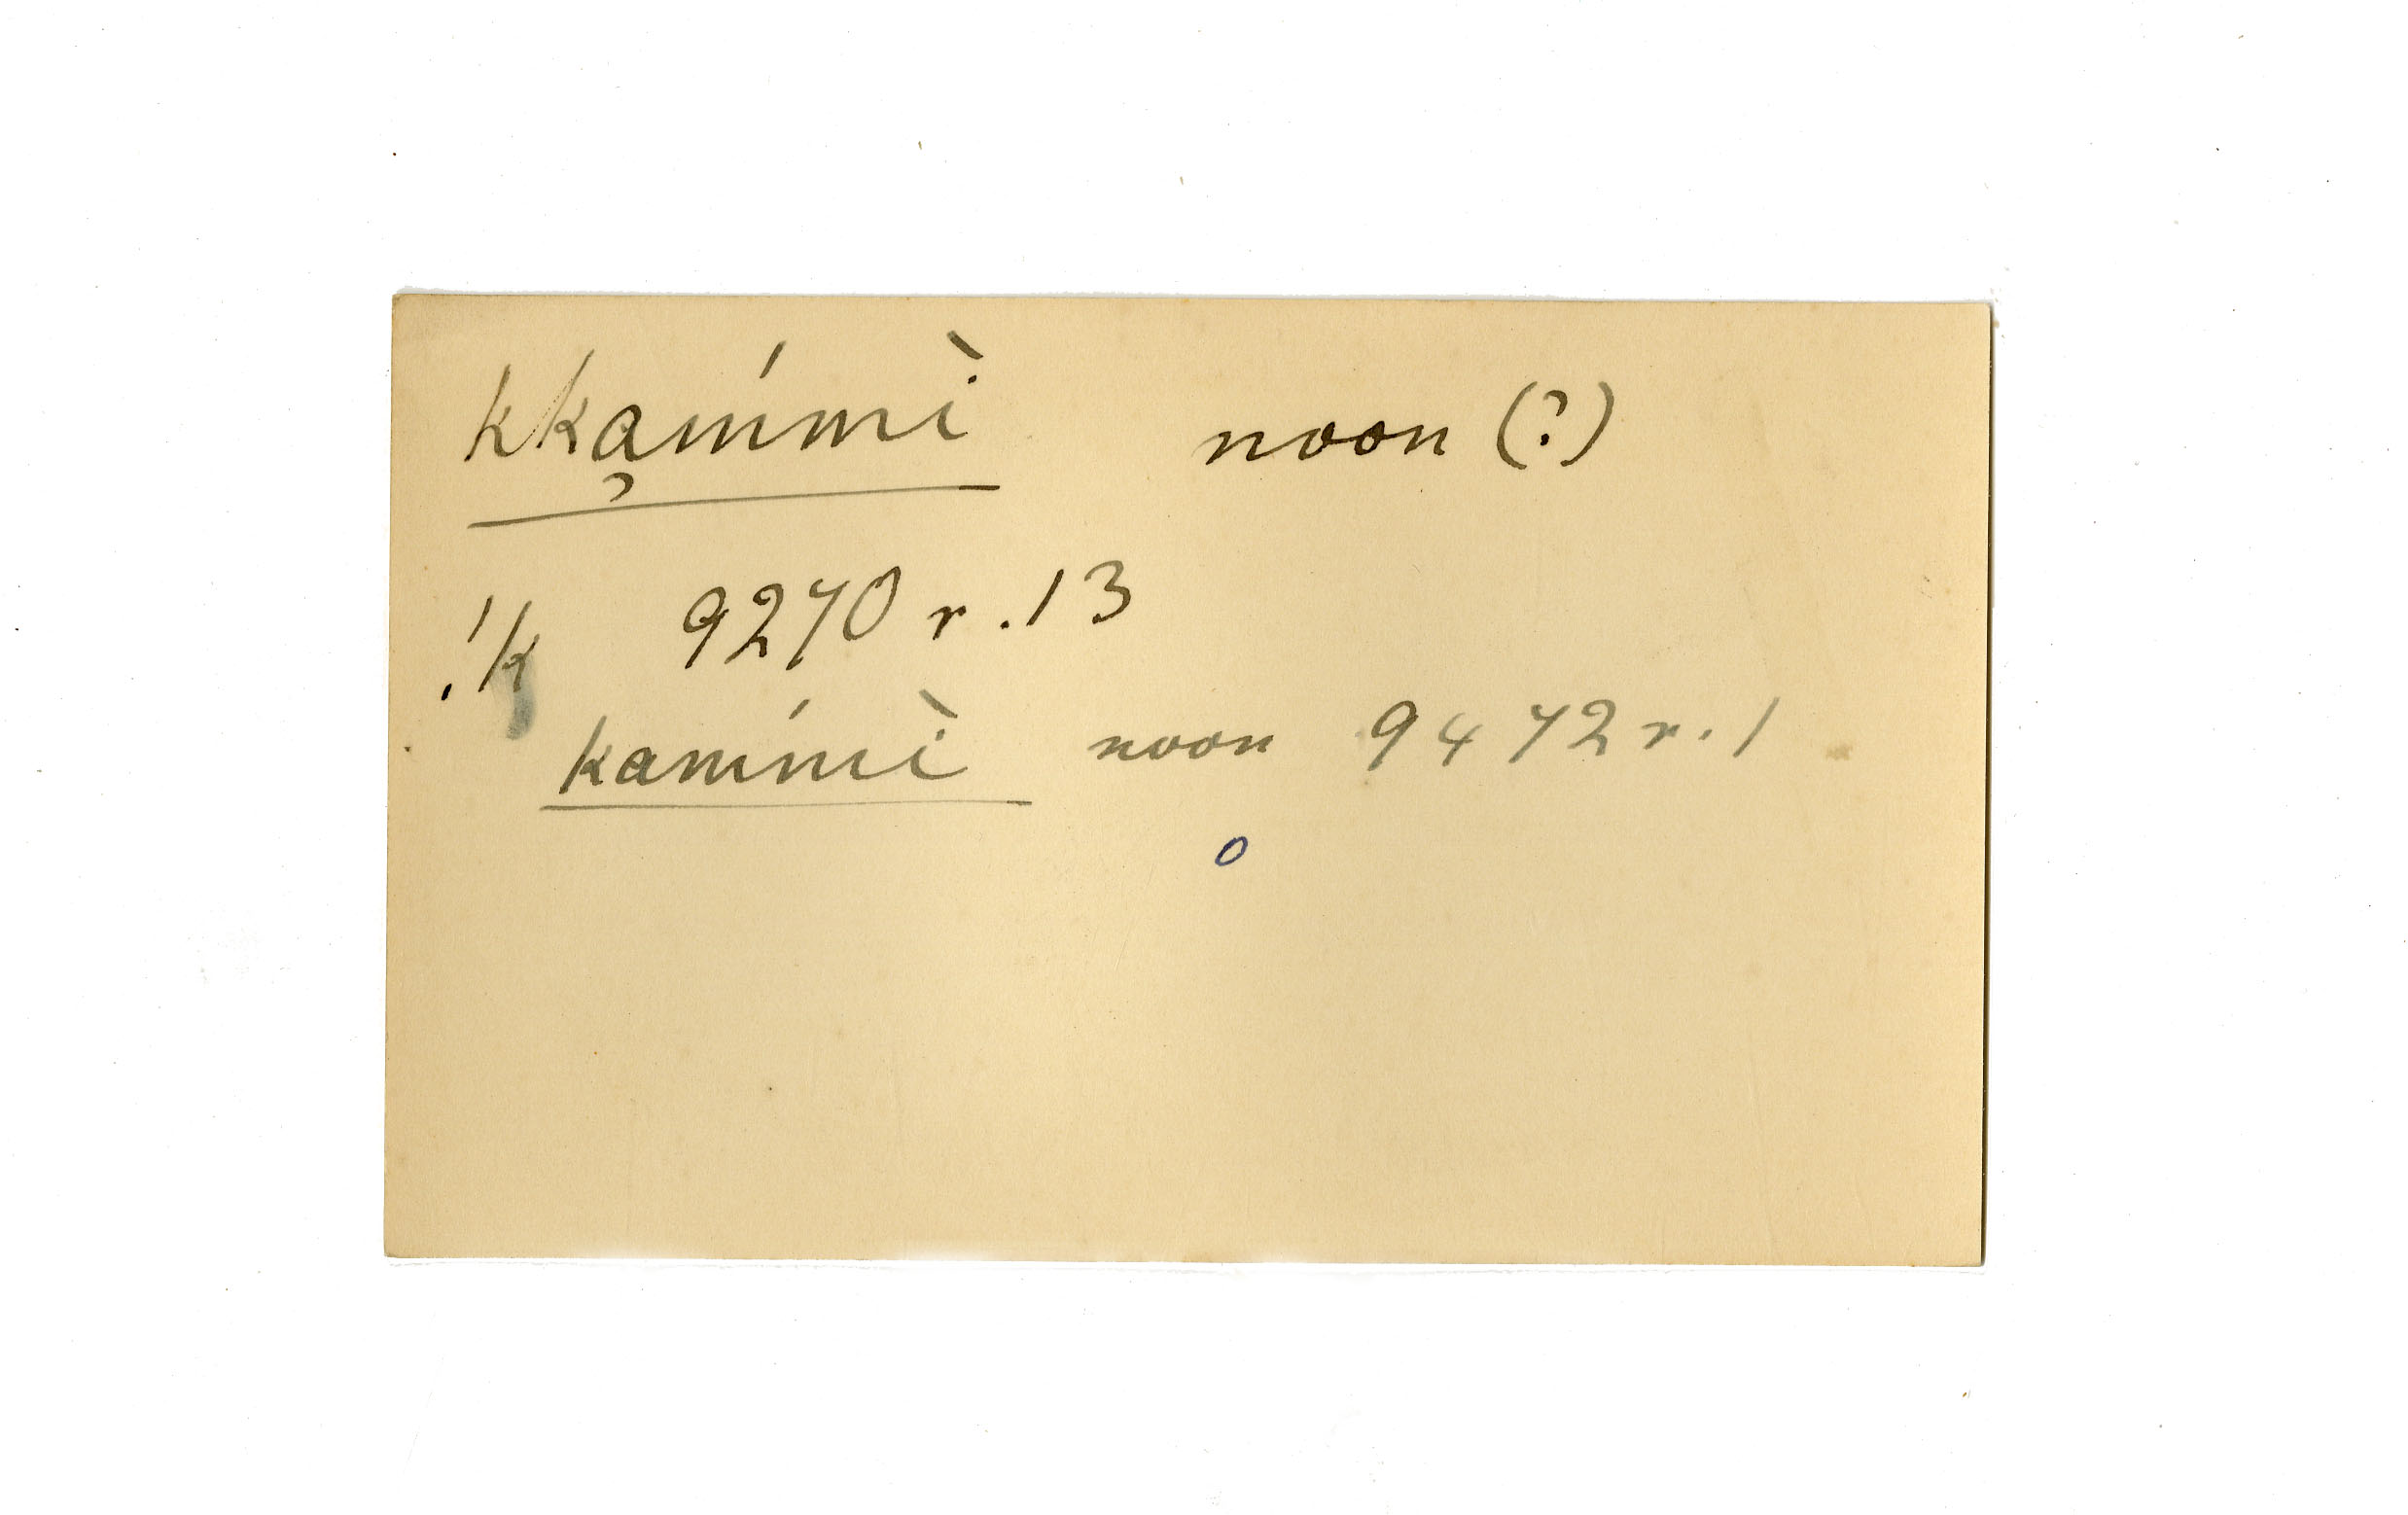 kkąmímì noon (?)
!k 9270 r. 13
kamímì noon 9472 r. 1
o